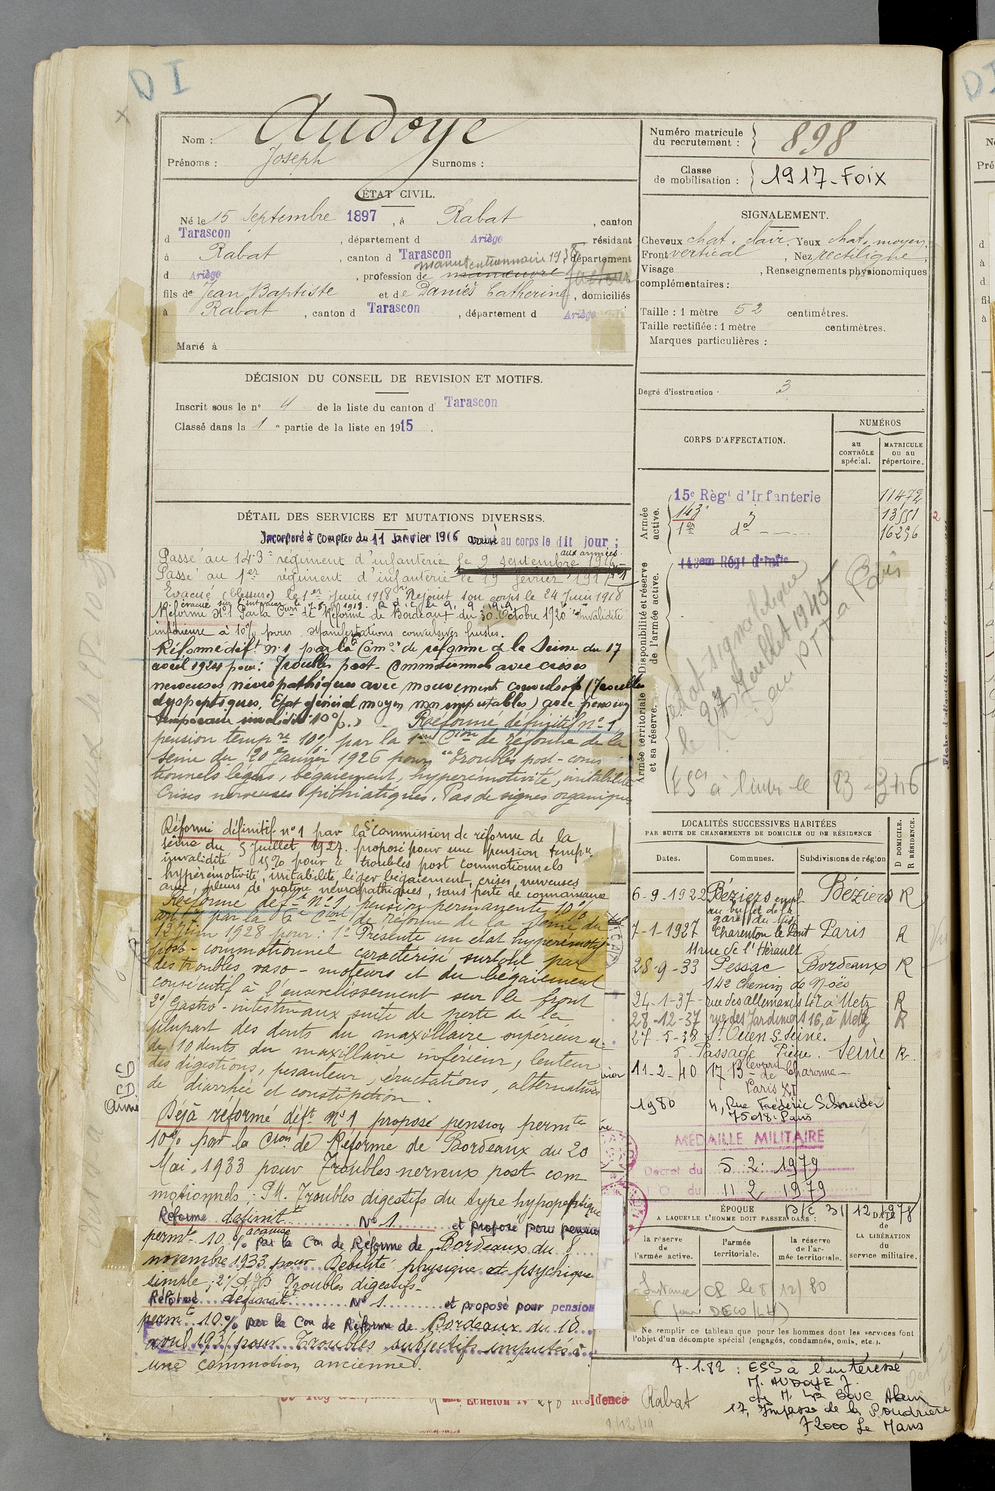 DI
Nom : Audoye
Prénoms : Joseph Surnoms :
Numéro matricule du recrutement : 898
Classe de mobilisation : 1917-Foix
ÉTAT CIVIL.
Né le 15 Septembre 1897, à Rabat, canton
d Tarascon, département d Ariège, résidant
à Rabat, canton d Tarascon, département
d Ariège, profession de manutentionnaire 1938 manœuvre facteur
fils de Jean Baptiste et de Daniès Catherine, domiciliés
à Rabat, canton d Tarascon, département d Ariège
Marié à
SIGNALEMENT.
Cheveux chat. clair. Yeux chat. moyen.
Front vertical, Nez rectiligne
Visage, Renseignements physionomiques
complémentaires :
Taille : 1 mètre 52 centimètres.
Taille rectifiée : 1 mètre centimètres.
Marques particulières :
Degré d'instruction : 3
DÉCISION DU CONSEIL DE REVISION ET MOTIFS.
Inscrit sous le n° 4 de la liste du canton d Tarascon
Classé dans la 1e partie de la liste en 1915.
CORPS D'AFFECTATION.
NUMÉROS
au CONTRÔLE spécial.
MATRICULE OU AU répertoire.
Armée active.
15e Régt d'Infanterie 11472
143e do 13551
1er do 16296
Disponibilité et réserve de l'armée active.
143eme Régt d'Infie
Armée territoriale et sa réserve.
Etat signalétique
le 27 Juillet 1945
au PTT à Paris
ESS à l'inter. le 23-3-76
DÉTAIL DES SERVICES ET MUTATIONS DIVERSES.
Incorporé à compter du 11 Janvier 1916 arrivé au corps le dit jour ;
Passé au 143e régiment d'infanterie le 2 septembre 1916 aux armées
Passé au 1er régiment d'infanterie le 19 février 1917
Evacué (blessure) le 1er juin 1918 Rejoint son corps le 24 Juin 1918
Réforme de Bordeaux du 30 Octobre 1920 Invalidité
inférieure à 10% pour manifestations convulsives frustes.
Réformé déf. n°1 par la Comon de réforme de la Seine du 17
avril 1924 pour : Troubles post-commotionnels avec crises
nerveuses névropathiques avec mouvements convulsifs (Troubles
dyspeptiques. Etat général moyen non imputables) avec pension
temporaire invalidité 10%. Réforme définitif n°1
pension tempre 10% par la 1ere Cion de réforme de la
Seine du 20 Janvier 1926 pour "troubles post-commo-
tionnels légers, bégaiement, hyperémotivité, irritabilité
crises nerveuses pithiatiques. Pas de signes organiques
Réformé définitif n°1 par la Commission de réforme de la
Seine du 5 Juillet 1927. proposé pour une pension tempre
invalidité 15% pour : troubles post commotionnels
hyperémotivité, irritabilité léger bégaiement, crises nerveuses
avec pleurs de nature névropathiques, sans perte de connaissance
Réforme déf. n°1, pension permanente 10%
par la Cion de réforme de la Seine du
13 Juin 1928 pour : 1° Présente un état hyperémotif
post-commotionnel caractérisé surtout par
des troubles vaso-moteurs et du bégaiement
consécutif à l'ensevelissement sur le front
2°) Gastro-intestinaux suite de perte de la
plupart des dents du maxillaire supérieur et
de 10 dents du maxillaire inférieur, lenteur
des digestions, pesanteur, éructations, alternatives
de diarrhée et constipation.
Déjà réformé déft n°1 proposé pension permte
10% par la Cion de Réforme de Bordeaux du 20
Mai 1933 pour Troubles nerveux post com
motionnels ; P.H. Troubles digestifs du type hypopeptique
Réformé définit. N° 1 et proposé pour pension
permte 10% acquise par la Con de Réforme de Bordeaux du 8
novembre 1933 pour Débilité physique et psychique
simple ; 2° Troubles digestifs.
Réformé définit. N° 1 et proposé pour pension
permte 10% par la Con de Réforme de Bordeaux du 10
avril 1935 pour Troubles subjectifs imputés à
une commotion ancienne.
LOCALITÉS SUCCESSIVES HABITÉES
PAR SUITE DE CHANGEMENTS DE DOMICILE OU DE RÉSIDENCE
Dates. Communes. Subdivisions de région
D DOMICILE. R RÉSIDENCE.
6-9-1922 Béziers empl. au buffet de la gare du Midi Béziers R
7-1-1927 Charenton le Pont Paris R
11 rue de l'Hérault
28-9-33 Pessac Bordeaux R
142 Chemin de Noès
24-1-37 rue des allemands 167 à Metz R
28-12-37 rue des Jardiniers 16, à Metz R
27-5-38 St Ouen s-Seine.
5 Passage Pierre. Seine R
11-2-40 17 Bd de Charonne-
Paris XI
1980 4, Rue Frédéric Schneider
75018-Paris
MEDAILLE MILITAIRE
Décret du 5.2.1979
J.O. du 11 2 1979
ÉPOQUE
A LAQUELLE L'HOMME DOIT PASSER DANS :
la réserve de l'armée active.
l'armée territoriale.
la réserve de l'armée territoriale.
DATE DE LA LIBÉRATION du service militaire.
Instance CR le 8/12/80
Ne remplir ce tableau que pour les hommes dont les services font
l'objet d'un décompte spécial (engagés, condamnés, omis, etc.).
7.1.82 : ESS à l'intéressé
M. AUDOYE J.
17, Impasse de la Poudrière
72000 Le Mans
Résidence Rabat